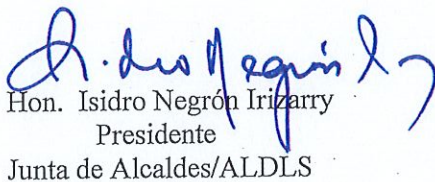 Isidro Negrón Iy
Hon. Isidro Negrón Irizarry
Presidente
Junta de Alcaldes/ALDLS